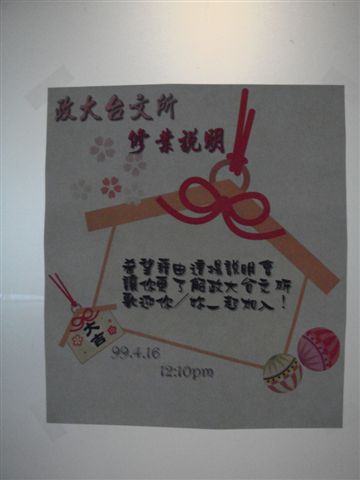 政大台文所
修業說明
希望藉由這場說明會
讓你更了解政大台文所
歡迎你/妳一起加入!
大吉
99.4.16
12:10pm